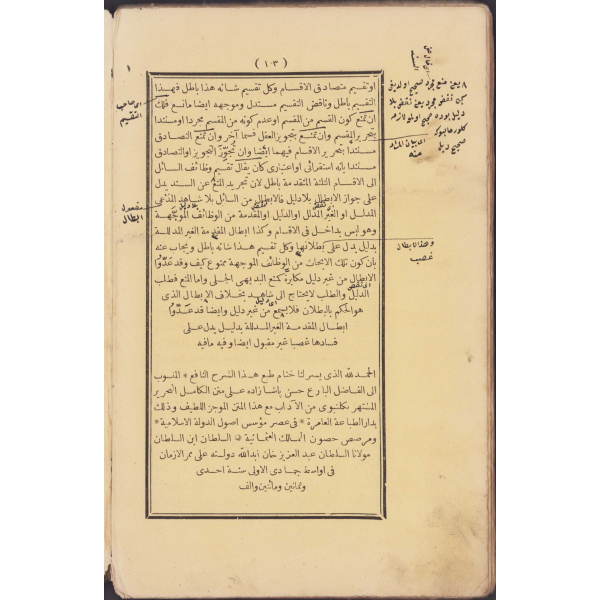 ( ١٠٣ )
او تقسيم متصادق الاقسام وكل تقسيم شانه هذا باطل فهذا
التقسيم باطل وناقض التقسيم مستدل وموجهه ايضا مانع فلك
ان تمنع كون القسيم من المقسم او عدم كونه من المقسم مجردا او مستندا
بتحرير المقسم وان تمنع بتجويز العقل قسما آخر وان تمنع التصادق
مستندا بتحرير الاقسام فيهما ايضا وان تجوز التجويز او التصادق
مستندا بانه استقرائى او اعتبارى كأن يقال تقسيم وظائف السائل
الى الاقسام الثلثة المتقدمة باطل لان تجريد المنع عن السند يدل
على جواز الابطال بلا دليل فالابطال من السائل بلا شاهد المدعى
المدلل او الغير المدلل او الدليل او المقدمة من الوظائف الموجهة
وهو ليس بداخل فى الاقسام وكذا ابطال المقدمة الغير المدللة
بدليل يدل على بطلانها وكل تقسيم هذا شانه باطل ويجاب عنه
بان كون تلك الابحاث من الوظائف الموجهة ممنوع كيف وقد عدوا
الابطال من غير دليل مكابرة كمنع البديهى الجلى واما المنع فطلب
الدليل والطلب لا يحتاج الى شاهد بخلاف الابطال الذى
هو الحكم بالبطلان فلا يسمع من غير دليل وايضا قد عدوا
ابطال المقدمة الغير المدللة بدليل يدل على
فسادها غصبا غير مقبول ايضا وفيه مافيه
الحمد لله الذى يسر لنا ختام طبع هذا الشرح النافع * المنسوب
الى الفاضل البارع حسن پاشا زاده على متن الكامل النحرير
المشتهر بكلنبوى من الآداب مع هذا المتن الموجز اللطيف وذلك
بدار الطباعة العامرة * فى عصر مؤسس اصول الدولة الاسلامية *
ومرصص حصون الممالك العثمانية * السلطان ابن السلطان
مولانا السلطان عبد العزيز خان ابد الله دولته على ممر الازمان
فى اواسط جمادى الاولى سنة احدى
وثمانين ومائتين والف
اى صاحب
التقسيم
بلا دليل
الابطال
وهذا الابطال
غصب
اى بيان المراد
منه